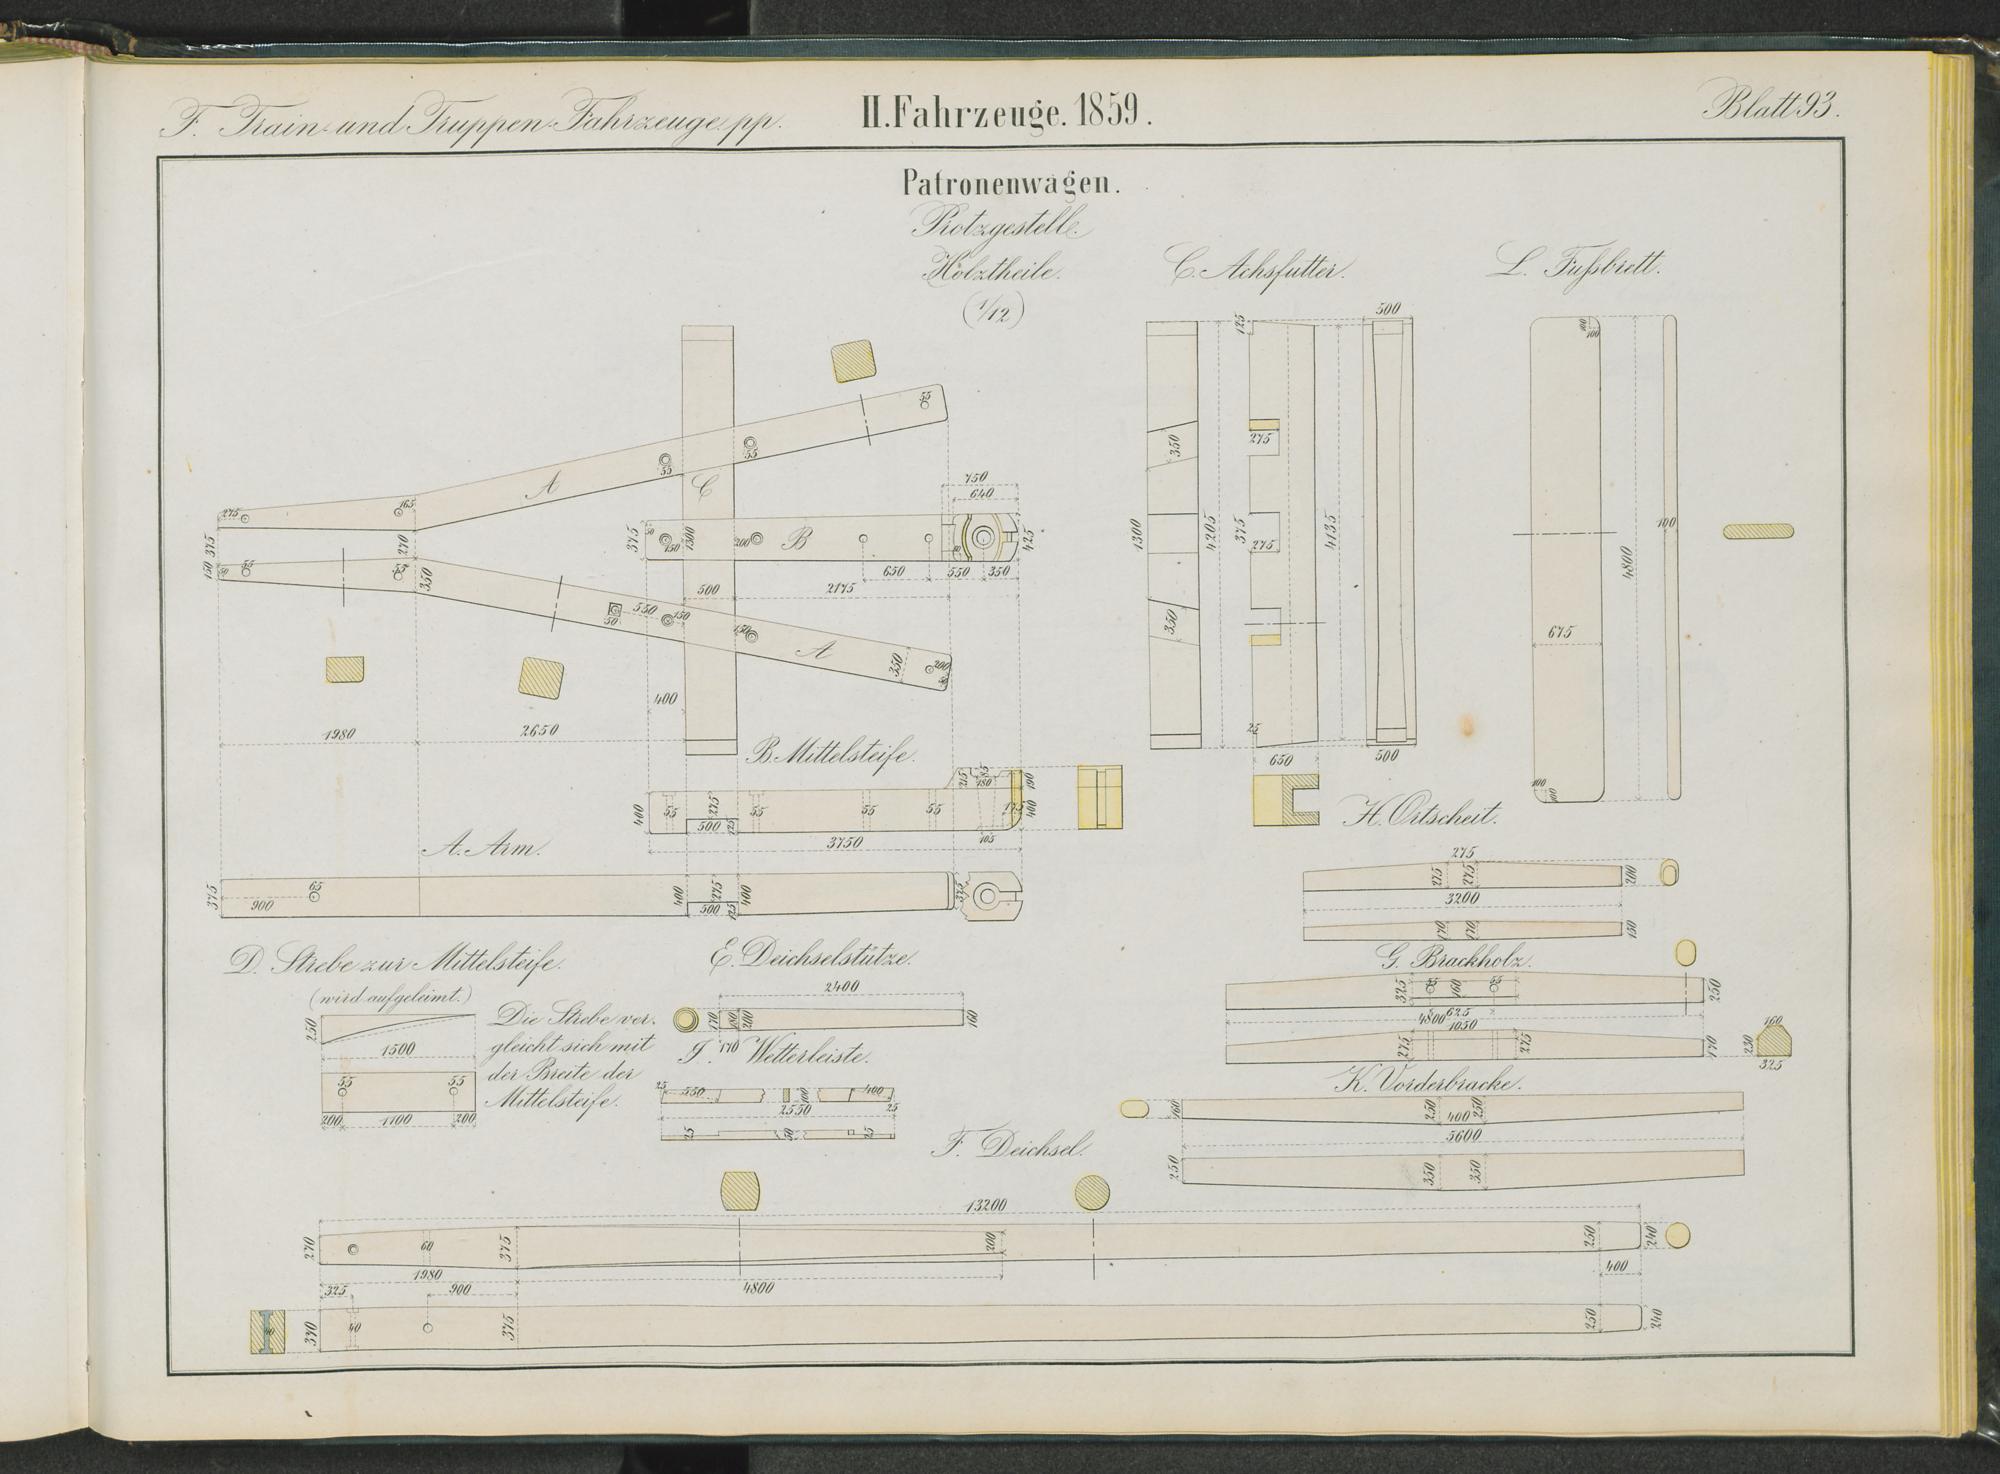 F. Train- und Truppen-Fahrzeuge pp.
II. Fahrzeuge. 1859.
Blatt 93.
Patronenwagen.
Protzgestelle.
Holztheile.
(1/12)
C. Achsfutter.
L. Fußbrett.
500
125
100
100
55
275
350
55
55
A
C
750
640
275
165
375
270
375
50
150
1300
200
B
425
1300
4205
375
275
4135
100
4800
150
50
55
55
350
650
550
350
500
2175
550
50
150
150
A
350
200
350
675
400
1980
2650
25
650
500
B. Mittelsteife.
215
85
180
190
400
55
275
55
55
55
175
400
500
125
3750
105
100
100
H. Ortscheit.
A. Arm.
375
65
900
400
275
400
500
125
375
275
275
275
200
3200
170
170
150
D. Strebe zur Mittelsteife.
(wird aufgeleimt.)
E. Deichselstütze.
G. Brackholz.
2400
250
1500
Die Strebe ver-
gleicht sich mit
der Breite der
Mittelsteife.
170
180
200
160
170
325
55
160
55
250
4800
625
1050
275
275
170
160
230
325
55
55
200
1100
200
J. Wetterleiste.
25
550
100
400
2550
25
25
50
25
K. Vorderbracke.
160
250
400
250
5600
250
350
350
F. Deichsel.
13200
270
60
375
200
250
240
1980
4800
400
325
900
40
370
40
375
250
240